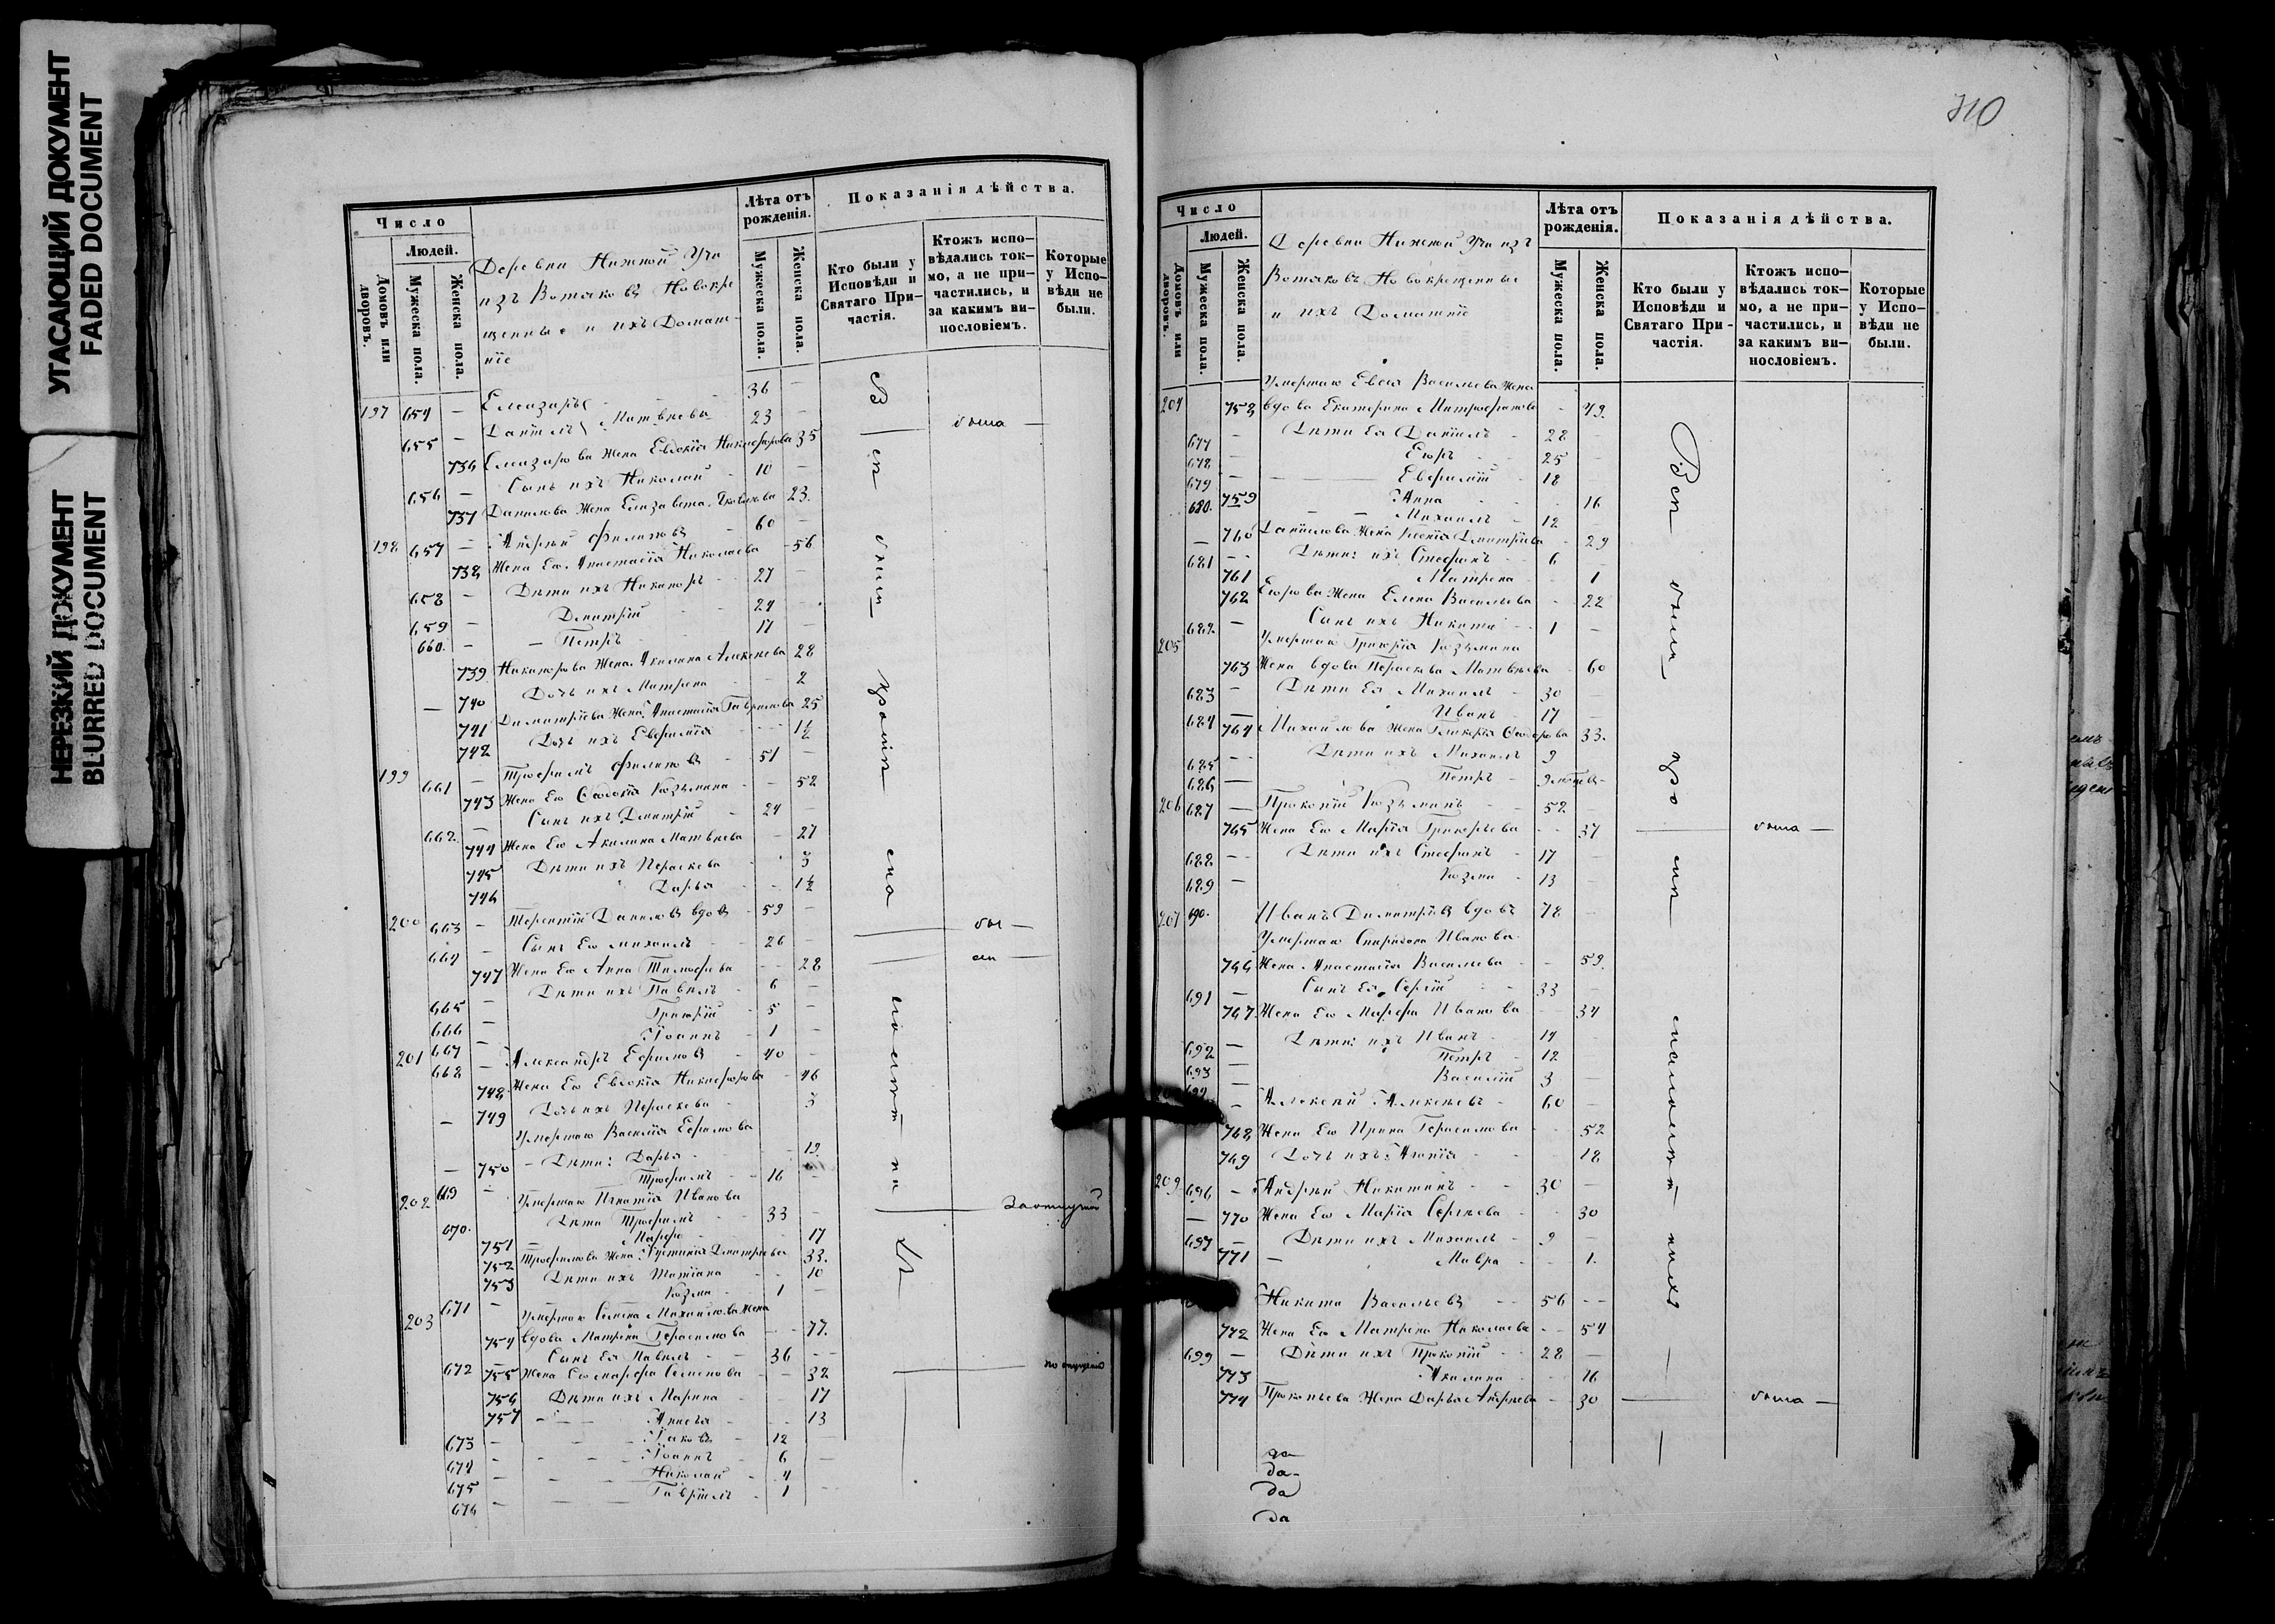 УГАСАЮЩИЙ ДОКУМЕНТ
FADED DOCUMENT
НЕРЕЗКИЙ ДОКУМЕНТ
BLURRED DOCUMENT
Число
Людей.
Домовъ или дворовъ.
Мужеска пола.
Женска пола.
Деревни Нижной Учи
изъ Вотяковъ Новокре
щенные и ихъ Домаш-
ніе
Лѣта отъ рожденія.
Мужеска пола.
Женска пола.
Показанія дѣйства.
Кто были у Исповѣди и Святаго При-частія.
Ктожъ испо-вѣдались ток-мо, а не при-частились, и за какимъ ви-нословіемъ.
Которые у Испо-вѣди не были.
197 654 — Елеазаръ 36 —
655 — Даніилъ Матвѣевы 23 —
736 Елеазарова Жена Евдокія Никифорова 35
656 — Сынъ ихъ Николай 10 —
737 Данилова Жена Елизавета Яковлева 23.
198 657 — Андрей Филиповъ 60 —
738 Жена Его Анастасія Николаева 56
658 — Дѣти ихъ Никаноръ 27 —
659 — Димитрій 24
660. — Петръ 17 —
739 Никанорова Жена Акилина Алексѣева 28
740 Дочь ихъ Матрена 2
741 Димитріева Жена Анастасія Гаврилова 25
742 Дочь ихъ Евфимія 1½
199 661 — Трофимъ Филиповъ 51 —
743 Жена Его Феодосія Козьмина 52
662. — Сынъ ихъ Димитрій 24
744 Жена Его Акилина Матвѣева 27
745 Дѣти ихъ Параскева 3
746 Дарья 1½
200 663 — Терентій Даниловъ вдовъ 59 —
664 — Сынъ Его Михаилъ 26 —
747 Жена Его Анна Тимофеева 28
665 — Дѣти ихъ Павелъ 6 —
666 — Григорій 5 —
667 — Іоаннъ 1 —
201 668 — Александръ Ефимовъ 40 —
748 Жена Его Евдокія Никифорова 46
749 Дочь ихъ Параскева 3
Умершаго Василія Ефимова
750 Дѣти: Дарья 19.
669 — Трофимъ 16
202 Умершаго Игнатія Иванова
670. Дѣти Трофимъ 33
751 Марфа 17
752 Трофимова Жена Устинія Дмитріева 33.
753 Дѣти ихъ Татіана 10
671 — Козма 1
203 Умершаго Семена Михайлова Жена
754 вдова Матрена Герасимова 77.
672 Сынъ Ея Павелъ 36
755 Жена Его Марфа Семенова 32
756 Дѣти ихъ Марина 17
757 Анисья 13
673 — Іаковъ 12
674 — Іоаннъ 6
675 — Николай 4
676 — Гавріилъ 1
Всѣ были кромѣ
была
710
Число
Людей.
Домовъ или дворовъ.
Мужеска пола.
Женска пола.
Деревни Нижной Учи изъ
Вотяковъ Новокрещенные
и ихъ Домашніе
Лѣта отъ рожденія.
Мужеска пола.
Женска пола.
Показанія дѣйства.
Кто были у Исповѣди и Святаго При-частія.
Ктожъ испо-вѣдались ток-мо, а не при-частились, и за какимъ ви-нословіемъ.
Которые у Испо-вѣди не были.
204 Умершаго Евсея Васильева Жена
758 вдова Екатерина Митрофанова 49.
677 — Дѣти Ея Даніилъ 28
678 — Егоръ 25
679 — Евфимій 18
759 Анна 16
680. Михаилъ 12
760 Даніилова Жена Ксенія Дмитріева 29
681 Дѣти: ихъ Стефанъ 6
761 Матрена 1
762 Егорова Жена Елена Васильева 22
682. — Сынъ ихъ Никита 1
205 Умершаго Григорія Козьмина
763 Жена вдова Параскева Матвѣева 60
683 — Дѣти Ея Михаилъ 30 —
684 — Иванъ 17 —
764 Михайлова Жена Гликерія Феодорова 33.
685 Дѣти ихъ Михаилъ 9
686 — Петръ
206 687 — Прокопій Козьминъ 52 —
765 Жена Его Марія Григорьева 37 — была —
688 Дѣти ихъ Стефанъ 17 —
689 — Козма 13 —
207 690. Иванъ Димитріевъ вдовъ 78
Умершаго Спиридона Иванова
766 Жена Анастасія Васильева 59.
691 — Сынъ Ея Сергій 33
767. Жена Его Марфа Иванова 34
692 — Дѣти: ихъ Иванъ 14
693 — Петръ 12
Василій 3
— Алексей Алексѣевъ 60 —
768 Жена Его Ирина Герасимова 52
769 Дочь ихъ Агафія 18
209 696 — Андрей Никитинъ 30 —
770 Жена Его Марія Сергѣева 30
697 Дѣти ихъ Михаилъ 9
771 Мавра 1.
Никита Васильевъ 56
772 Жена Его Матрена Николаева 54
699 — Дѣти ихъ Прокопій 28 —
773 Акилина 16
774 Прокопьева Жена Дарья Андреева 30 — была —
Всѣ были
да
да
да
да